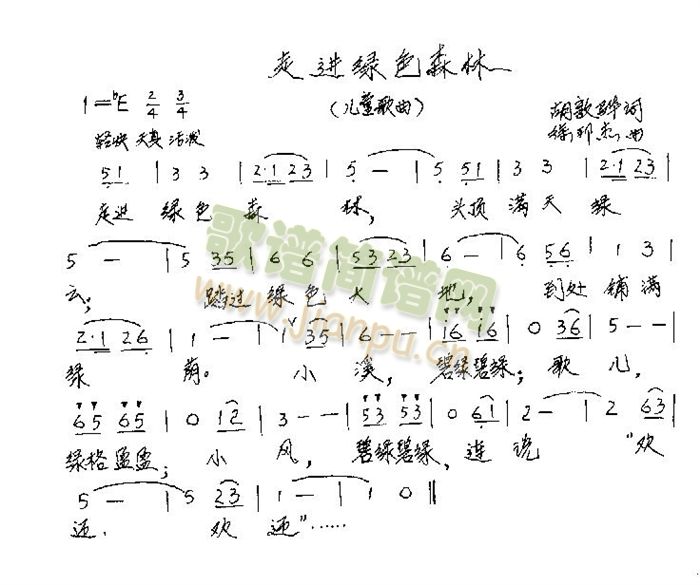 走进绿色森林
(儿童歌曲)
1=ᵇE 2/4 3/4
轻快 天真 活泼
词
曲
5 1 | 3 3 | 2·1 2 3 | 5 — | 5 5 1 | 3 3 | 2·1 2 3 |
走进 绿色 森 林, 头顶 满天 绿
5 — | 5 3 5 | 6 6 | 5 3 2 3 | 6 — | 6 5 6 | 1 3 |
云; 踏过 绿色 大 地, 到处 铺满
2·1 2 6 | 1 — | 1 3 5 | 6 — | i 6 i 6 | 0 3 6 | 5 — — |
绿 荫。 小 溪, 碧绿碧绿; 歌 儿,
6 5 6 5 | 0 1 2 | 3 — — | 5 3 5 3 | 0 6 1 | 2 — | 2 6 3 |
绿格盈盈; 小 风, 碧绿碧绿, 连说 "欢
5 — | 5 2 3 | 1 — | 1 0 ‖
迎. 欢 迎"……
歌谱简谱网
www.jianpu.cn